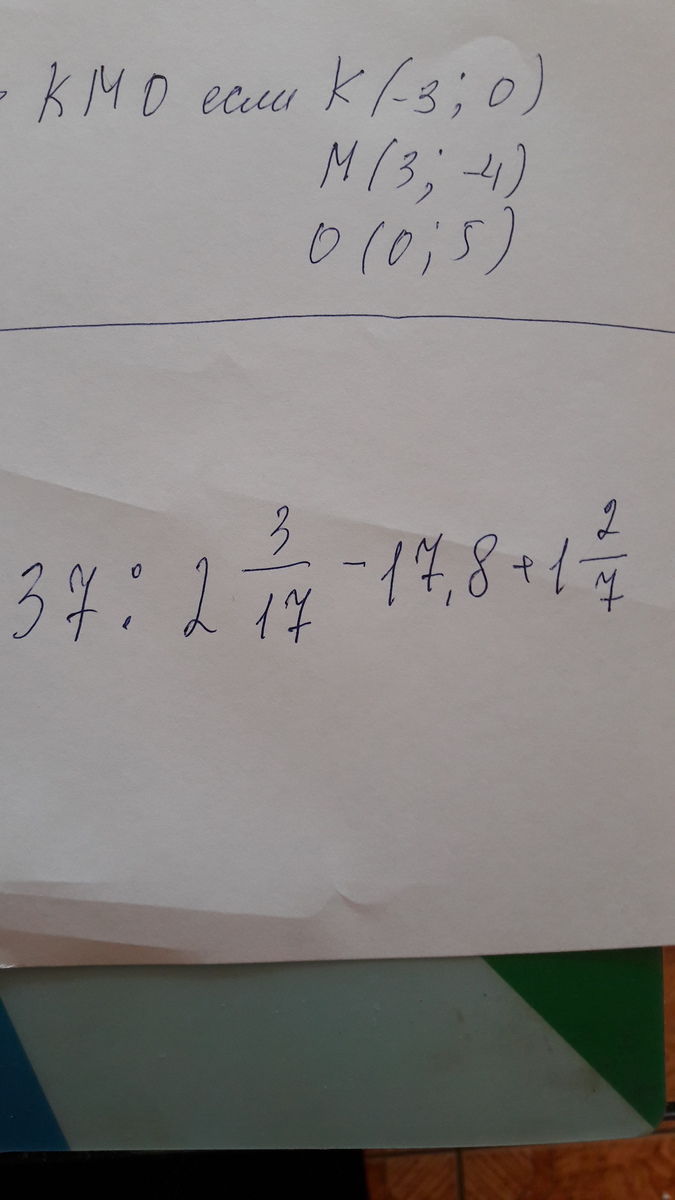 КМО если К(-3; 0)
М(3; -4)
О(0; 5)
37 : 2 3/17 - 17,8 + 1 2/7